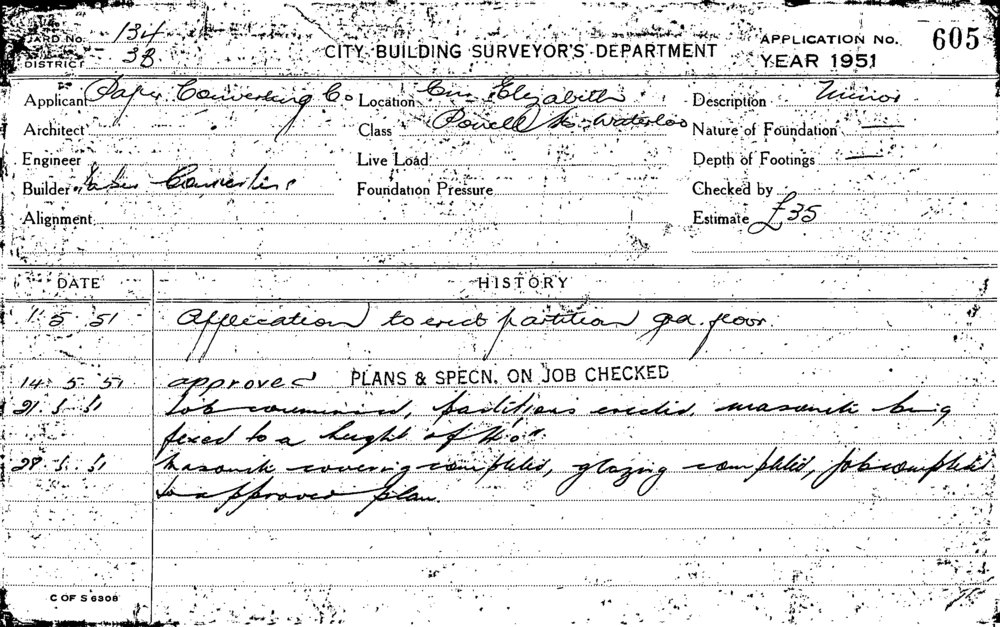 CARD No. 134
DISTRICT 3B
CITY BUILDING SURVEYOR'S DEPARTMENT
APPLICATION No. 605
YEAR 1951
Applicant Paper Converting Co Location Cnr. Elizabeth Description Minor
Architect Class Powell St Waterloo Nature of Foundation —
Engineer Live Load Depth of Footings —
Builder Paper Converting Foundation Pressure Checked by
Alignment Estimate £35
DATE HISTORY
1 5 51 Application to erect partition gd. floor.
14 5 51 approved PLANS & SPECN. ON JOB CHECKED
21. 5. 51 Job commenced, partitions erected, masonite being
fixed to a height of 4'0"
28. 5. 51 Masonite covering completed, glazing completed, job completed
to approved plan.
C OF S 6308